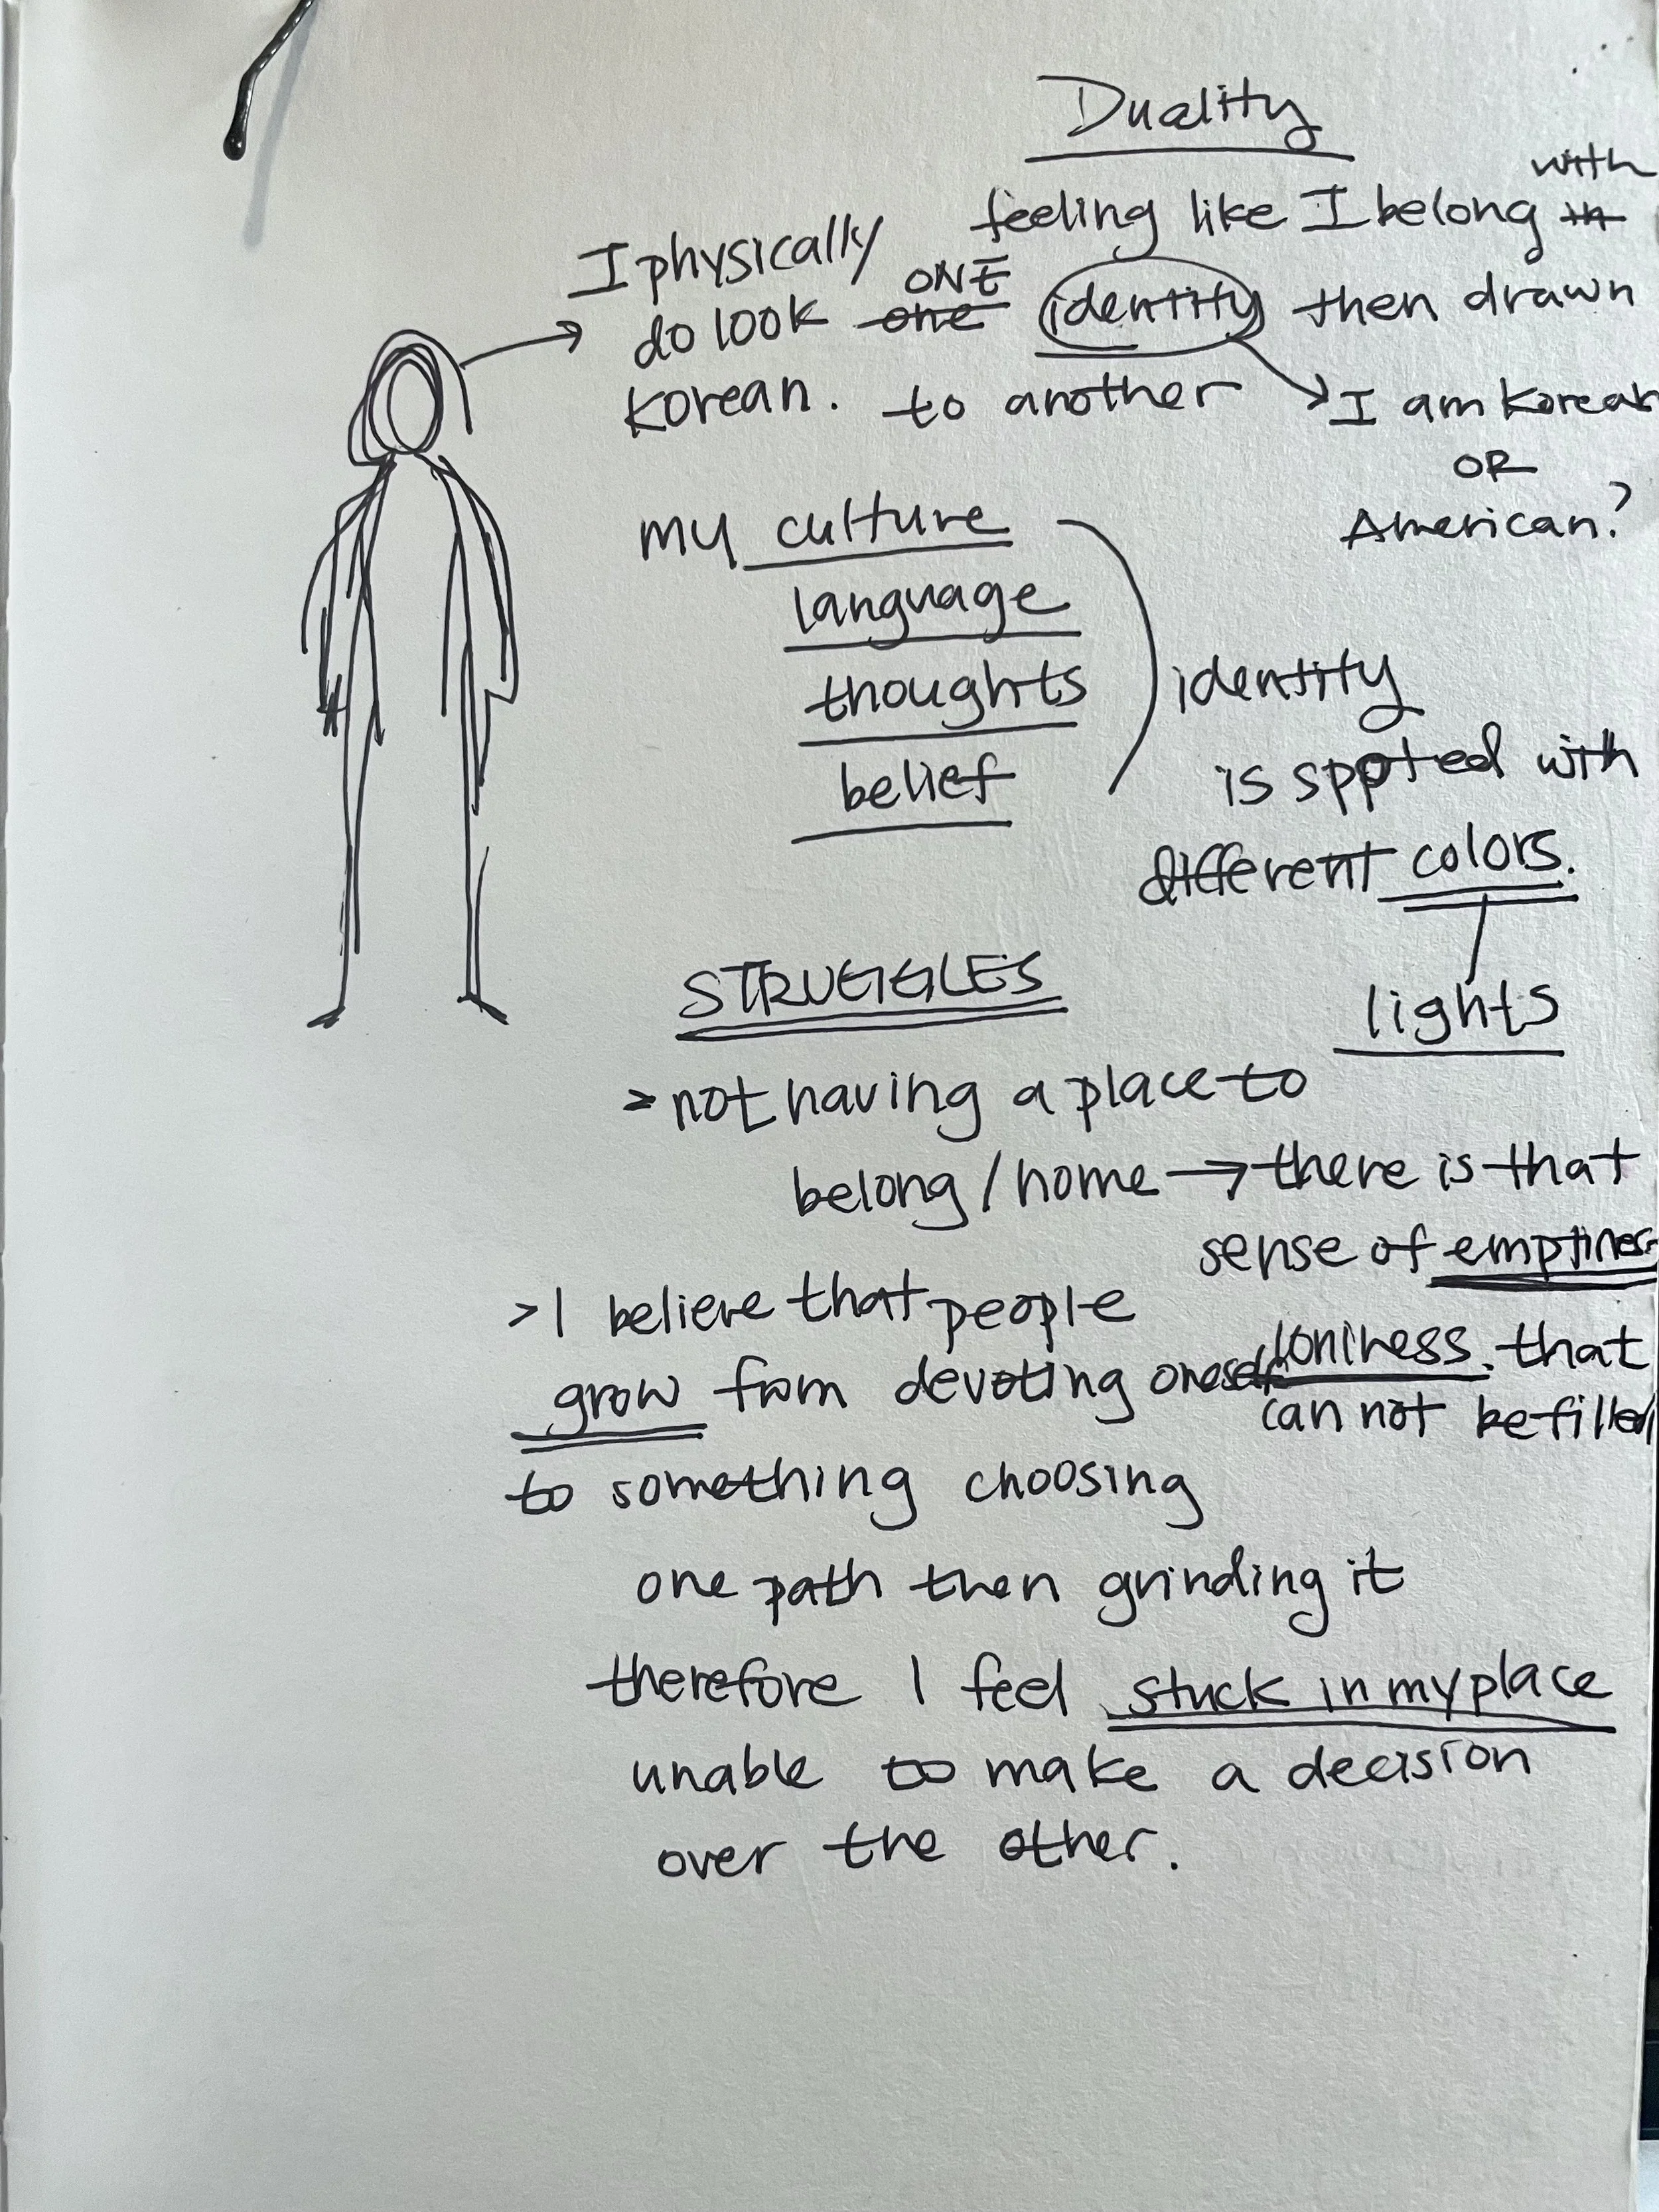 Duality
with
feeling like I belong in
ONE
one identity then drawn
to another
I am Korean
OR
American?
I physically
do look
korean.
my culture
language
thoughts
belief
identity
is spoted with
different colors.
lights
STRUGGLES
> not having a place to
belong / home → there is that
sense of emptiness
loniness. that
can not be filled
> I believe that people
grow from devoting oneself
to something choosing
one path then grinding it
therefore I feel stuck in my place
unable to make a decision
over the other.